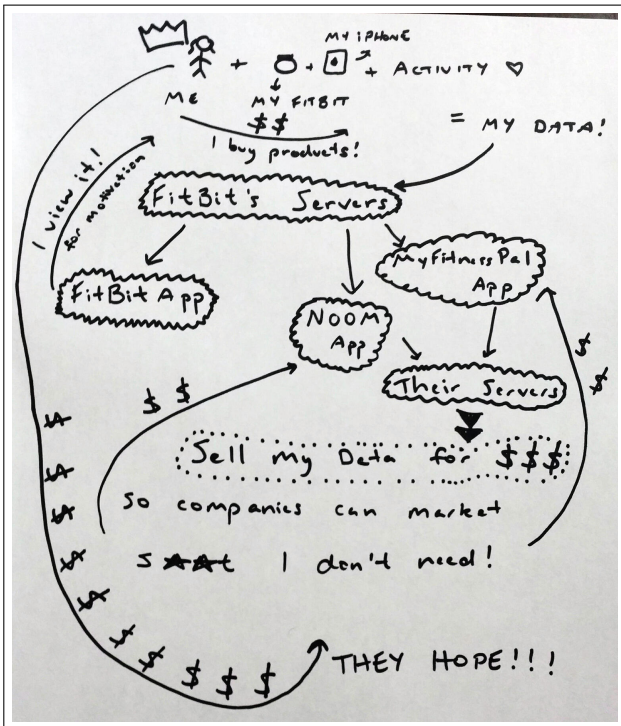 MY iPHONE
+ + + ACTIVITY ♡
ME MY FITBIT
$$
I buy products!
= MY DATA!
I view it!
for motivation
FitBit's Servers
FitBit App
MyFitnessPal
App
NOOM
App
Their Servers
$ $
$ $
Sell my Data for $$$
so companies can market
s**t I don't need!
$ $ $ $ $ $ $ $ $ $
THEY HOPE!!!